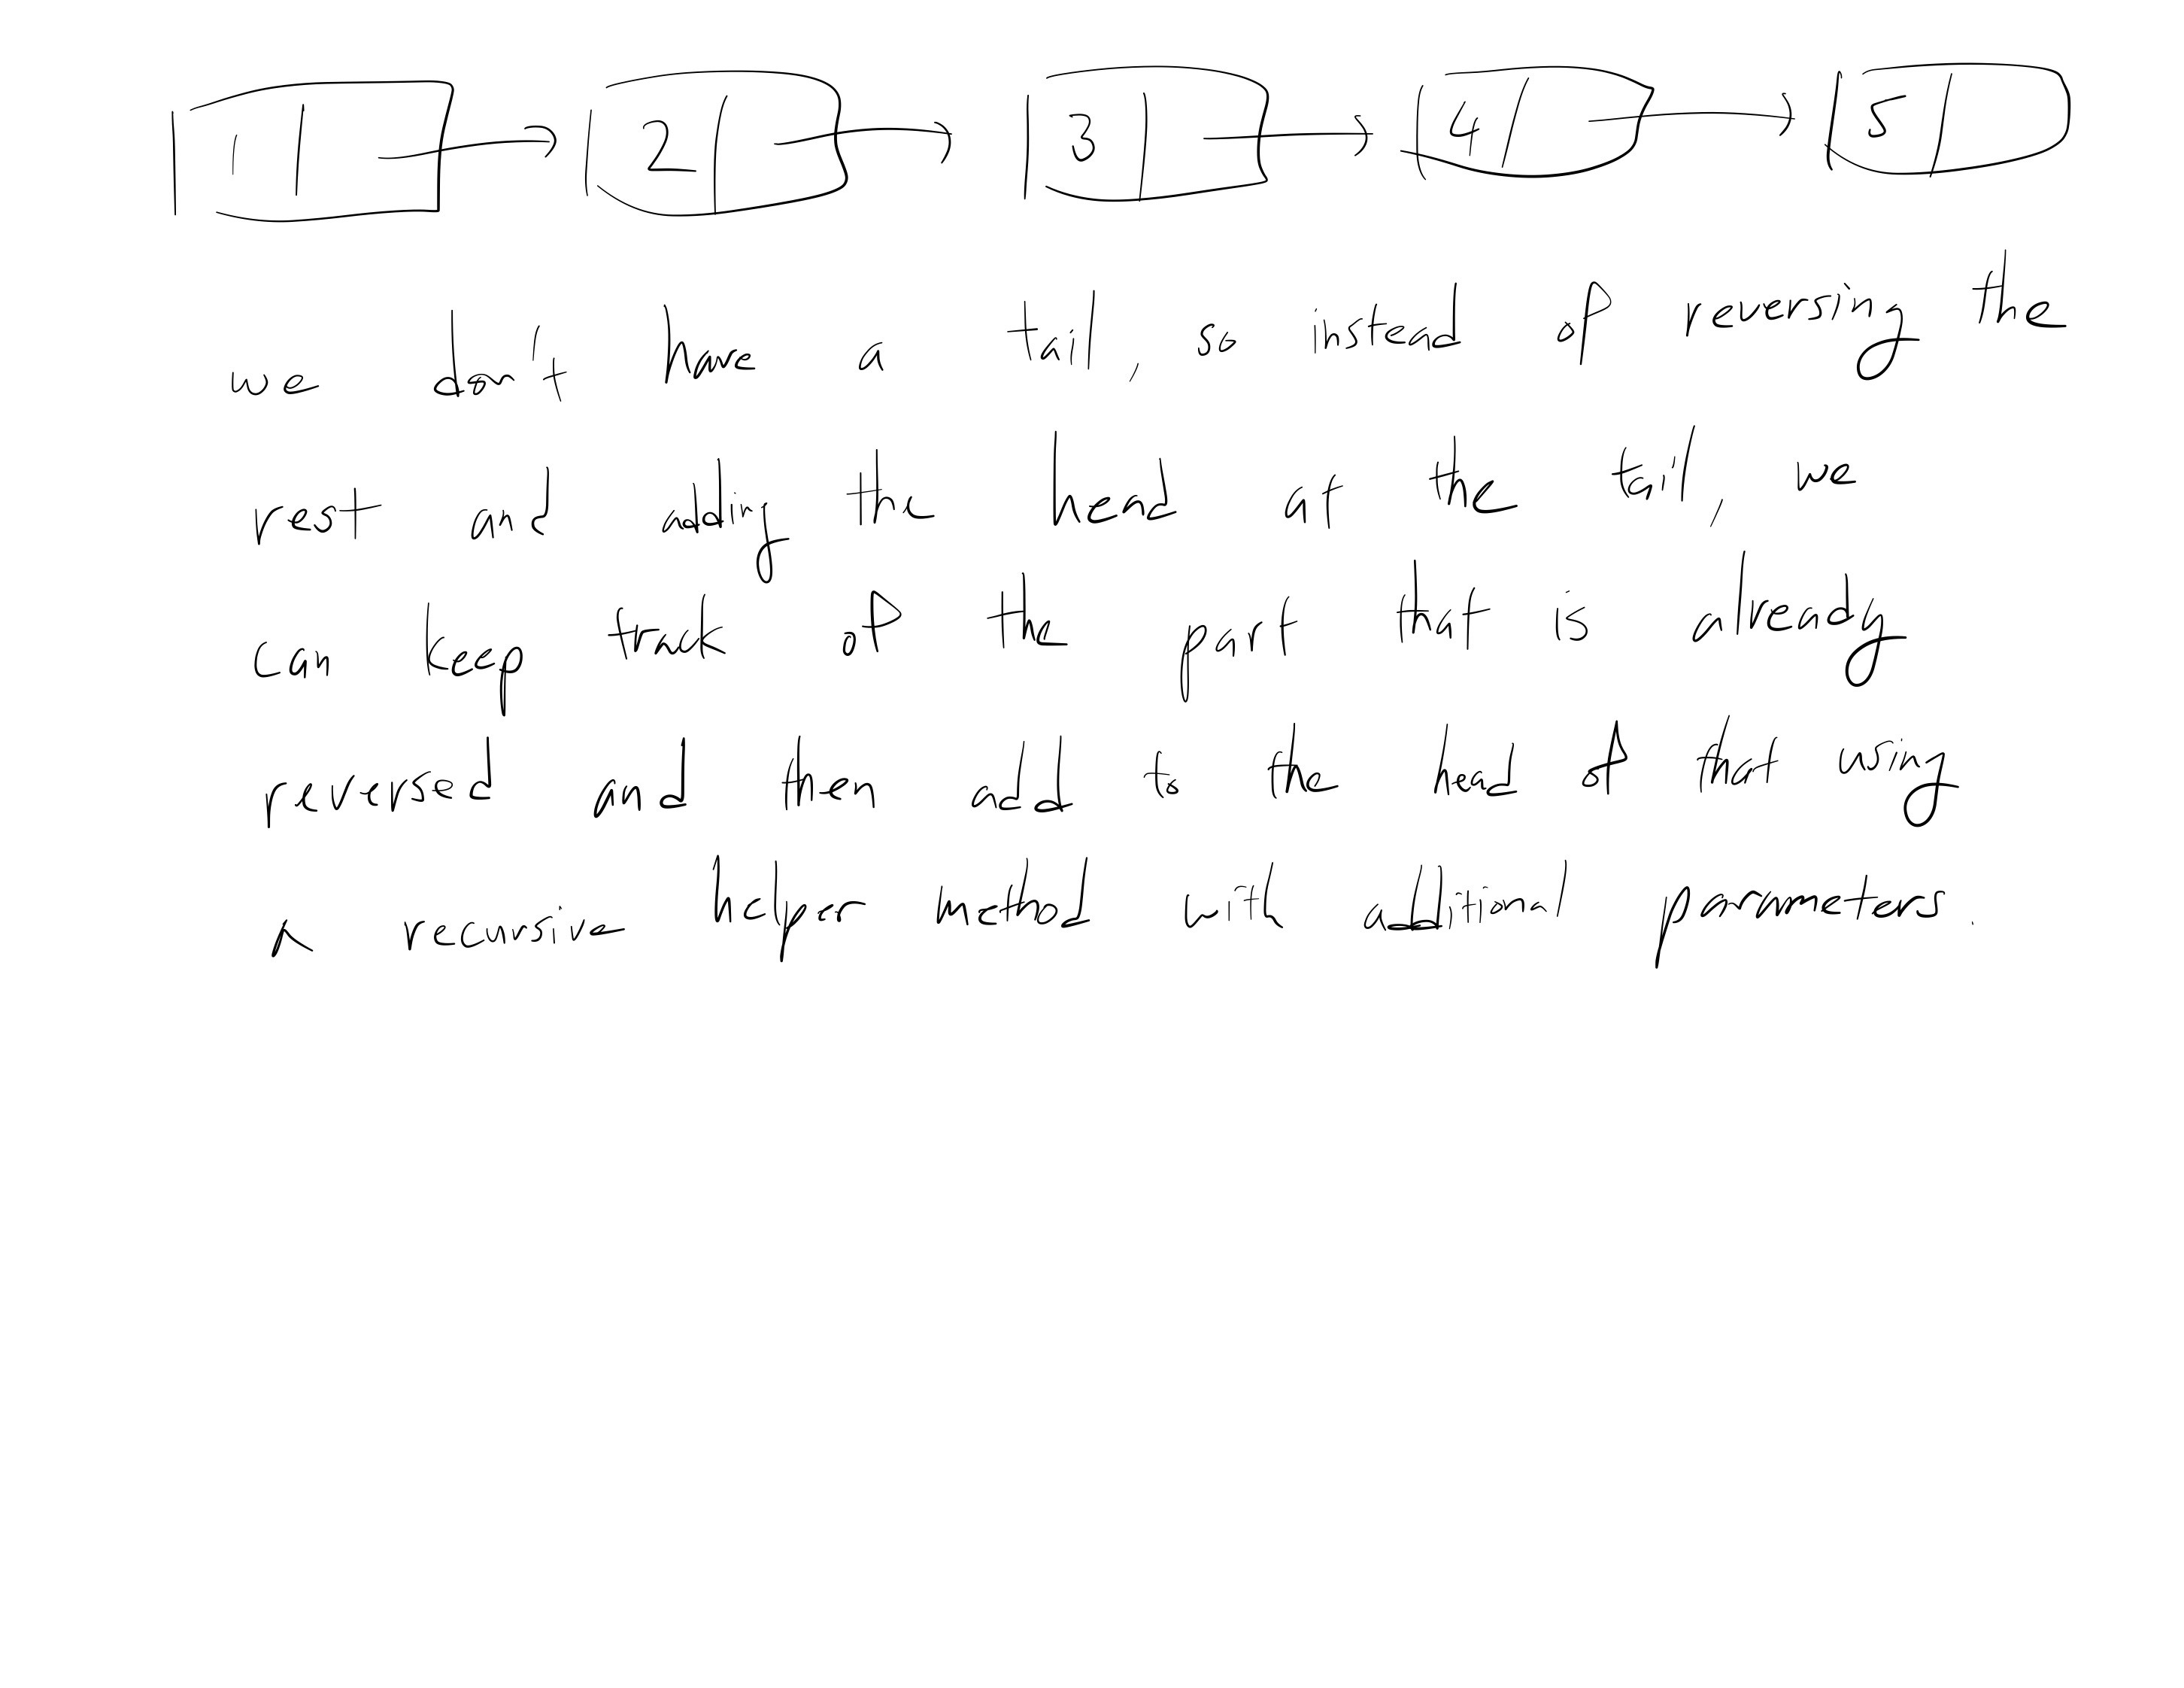 1 2 3 4 5
we don't have a tail, so instead of reversing the
rest and adding the head at the tail, we
can keep track of the part that is already
reversed and then add to the head of that using
a recursive helper method with additional parameters.